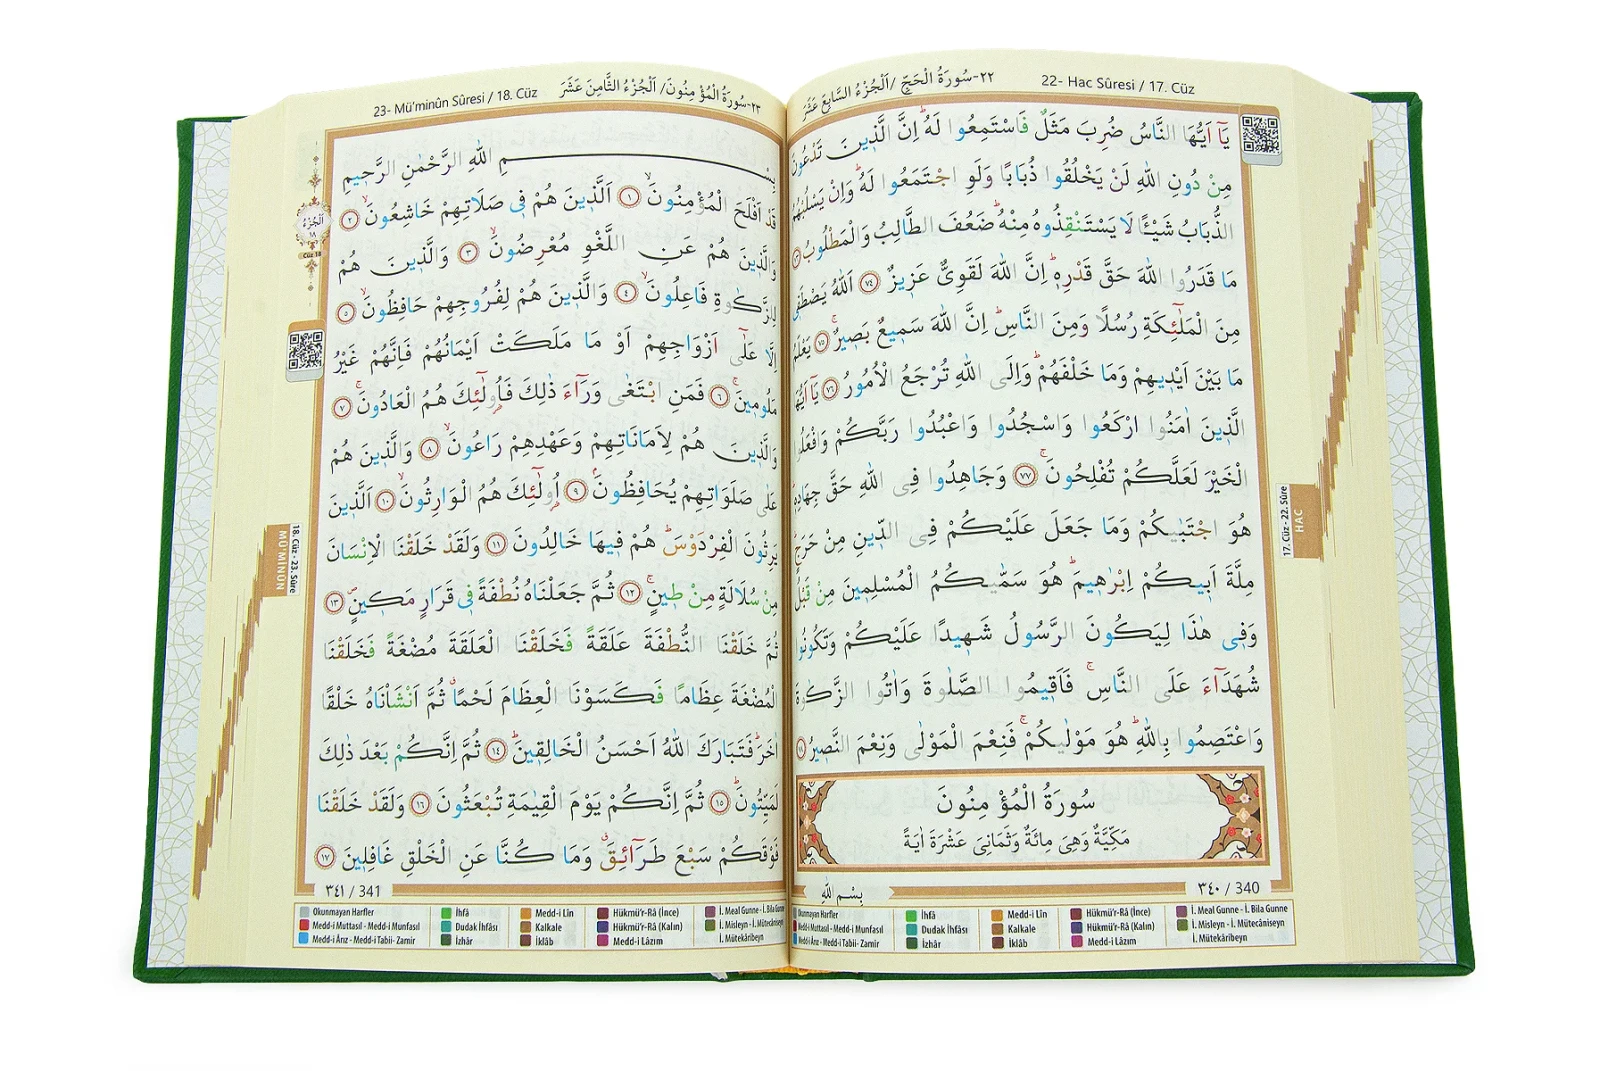 ٢٢-سُورَةُ الْحَجِّ /اَلْجُزْءُ السَّابِعَ عَشَرَ 22- Hac Sûresi / 17. Cüz
يَٓا اَيُّهَا النَّاسُ ضُرِبَ مَثَلٌ فَاسْتَمِعُوا لَهُۜ اِنَّ الَّذ۪ينَ تَدْعُونَ
مِنْ دُونِ اللّٰهِ لَنْ يَخْلُقُوا ذُبَابًا وَلَوِ اجْتَمَعُوا لَهُۜ وَاِنْ يَسْلُبْهُمُ
الذُّبَابُ شَيْـًٔا لَا يَسْتَنْقِذُوهُ مِنْهُۜ ضَعُفَ الطَّالِبُ وَالْمَطْلُوبُ ٧٣
مَا قَدَرُوا اللّٰهَ حَقَّ قَدْرِه۪ۜ اِنَّ اللّٰهَ لَقَوِيٌّ عَز۪يزٌ ٧٤ اَللّٰهُ يَصْطَف۪ي
مِنَ الْمَلٰٓئِكَةِ رُسُلًا وَمِنَ النَّاسِۜ اِنَّ اللّٰهَ سَم۪يعٌ بَص۪يرٌۚ ٧٥ يَعْلَمُ
مَا بَيْنَ اَيْد۪يهِمْ وَمَا خَلْفَهُمْۜ وَاِلَى اللّٰهِ تُرْجَعُ الْاُمُورُ ٧٦ يَٓا اَيُّهَا
الَّذ۪ينَ اٰمَنُوا ارْكَعُوا وَاسْجُدُوا وَاعْبُدُوا رَبَّكُمْ وَافْعَلُوا
الْخَيْرَ لَعَلَّكُمْ تُفْلِحُونَۚ ٧٧ وَجَاهِدُوا فِي اللّٰهِ حَقَّ جِهَادِه۪ۜ
هُوَ اجْتَبٰيكُمْ وَمَا جَعَلَ عَلَيْكُمْ فِي الدّ۪ينِ مِنْ حَرَجٍۜ
مِلَّةَ اَب۪يكُمْ اِبْرٰه۪يمَۜ هُوَ سَمّٰيكُمُ الْمُسْلِم۪ينَ مِنْ قَبْلُ
وَف۪ي هٰذَا لِيَكُونَ الرَّسُولُ شَه۪يدًا عَلَيْكُمْ وَتَكُونُوا
شُهَدَٓاءَ عَلَى النَّاسِۚ فَاَق۪يمُوا الصَّلٰوةَ وَاٰتُوا الزَّكٰوةَ
وَاعْتَصِمُوا بِاللّٰهِۜ هُوَ مَوْلٰيكُمْۚ فَنِعْمَ الْمَوْلٰى وَنِعْمَ النَّص۪يرُ ٧٨
سُورَةُ الْمُؤْمِنُونَ
مَكِّيَّةٌ وَهِيَ مِائَةٌ وَثَمَانِيَ عَشْرَةَ اٰيَةً
بِسْمِ اللّٰهِ
٣٤٠ / 340
17. Cüz - 22. Sûre
HAC
Okunmayan Harfler
Medd-i Muttasıl - Medd-i Munfasıl
Medd-i Ârız - Medd-i Tabii- Zamir
İhfâ
Dudak İhfâsı
İzhâr
Medd-i Lîn
Kalkale
İklâb
Hükmü'r-Râ (İnce)
Hükmü'r-Râ (Kalın)
Medd-i Lâzım
İ. Meal Gunne - İ. Bila Gunne
İ. Misleyn - İ. Mütecâniseyn
İ. Mütekâribeyn
23- Mü'minûn Sûresi / 18. Cüz ٢٣-سُورَةُ الْمُؤْمِنُونَ/ اَلْجُزْءُ الثَّامِنَ عَشَرَ
بِسْمِ اللّٰهِ الرَّحْمٰنِ الرَّح۪يمِ
قَدْ اَفْلَحَ الْمُؤْمِنُونَۙ ١ اَلَّذ۪ينَ هُمْ ف۪ي صَلَاتِهِمْ خَاشِعُونَۙ ٢
وَالَّذ۪ينَ هُمْ عَنِ اللَّغْوِ مُعْرِضُونَۙ ٣ وَالَّذ۪ينَ هُمْ
لِلزَّكٰوةِ فَاعِلُونَۙ ٤ وَالَّذ۪ينَ هُمْ لِفُرُوجِهِمْ حَافِظُونَۙ ٥
اِلَّا عَلٰٓى اَزْوَاجِهِمْ اَوْ مَا مَلَكَتْ اَيْمَانُهُمْ فَاِنَّهُمْ غَيْرُ
مَلُوم۪ينَۚ ٦ فَمَنِ ابْتَغٰى وَرَٓاءَ ذٰلِكَ فَاُو۬لٰٓئِكَ هُمُ الْعَادُونَۚ ٧
وَالَّذ۪ينَ هُمْ لِاَمَانَاتِهِمْ وَعَهْدِهِمْ رَاعُونَۙ ٨ وَالَّذ۪ينَ هُمْ
عَلٰى صَلَوَاتِهِمْ يُحَافِظُونَۢ ٩ اُو۬لٰٓئِكَ هُمُ الْوَارِثُونَۙ ١٠ اَلَّذ۪ينَ
يَرِثُونَ الْفِرْدَوْسَۜ هُمْ ف۪يهَا خَالِدُونَ ١١ وَلَقَدْ خَلَقْنَا الْاِنْسَانَ
مِنْ سُلَالَةٍ مِنْ ط۪ينٍۚ ١٢ ثُمَّ جَعَلْنَاهُ نُطْفَةً ف۪ي قَرَارٍ مَك۪ينٍۖ ١٣
ثُمَّ خَلَقْنَا النُّطْفَةَ عَلَقَةً فَخَلَقْنَا الْعَلَقَةَ مُضْغَةً فَخَلَقْنَا
الْمُضْغَةَ عِظَامًا فَكَسَوْنَا الْعِظَامَ لَحْمًاۗ ثُمَّ اَنْشَأْنَاهُ خَلْقًا
اٰخَرَۜ فَتَبَارَكَ اللّٰهُ اَحْسَنُ الْخَالِق۪ينَۜ ١٤ ثُمَّ اِنَّكُمْ بَعْدَ ذٰلِكَ
لَمَيِّتُونَۜ ١٥ ثُمَّ اِنَّكُمْ يَوْمَ الْقِيٰمَةِ تُبْعَثُونَ ١٦ وَلَقَدْ خَلَقْنَا
فَوْقَكُمْ سَبْعَ طَرَٓائِقَۗ وَمَا كُنَّا عَنِ الْخَلْقِ غَافِل۪ينَ ١٧
٣٤١ / 341
اَلْجُزْءُ
١٨
Cüz 18
18. Cüz - 23. Sûre
MÜ'MİNÛN
Okunmayan Harfler
Medd-i Muttasıl - Medd-i Munfasıl
Medd-i Ârız - Medd-i Tabii- Zamir
İhfâ
Dudak İhfâsı
İzhâr
Medd-i Lîn
Kalkale
İklâb
Hükmü'r-Râ (İnce)
Hükmü'r-Râ (Kalın)
Medd-i Lâzım
İ. Meal Gunne - İ. Bila Gunne
İ. Misleyn - İ. Mütecâniseyn
İ. Mütekâribeyn